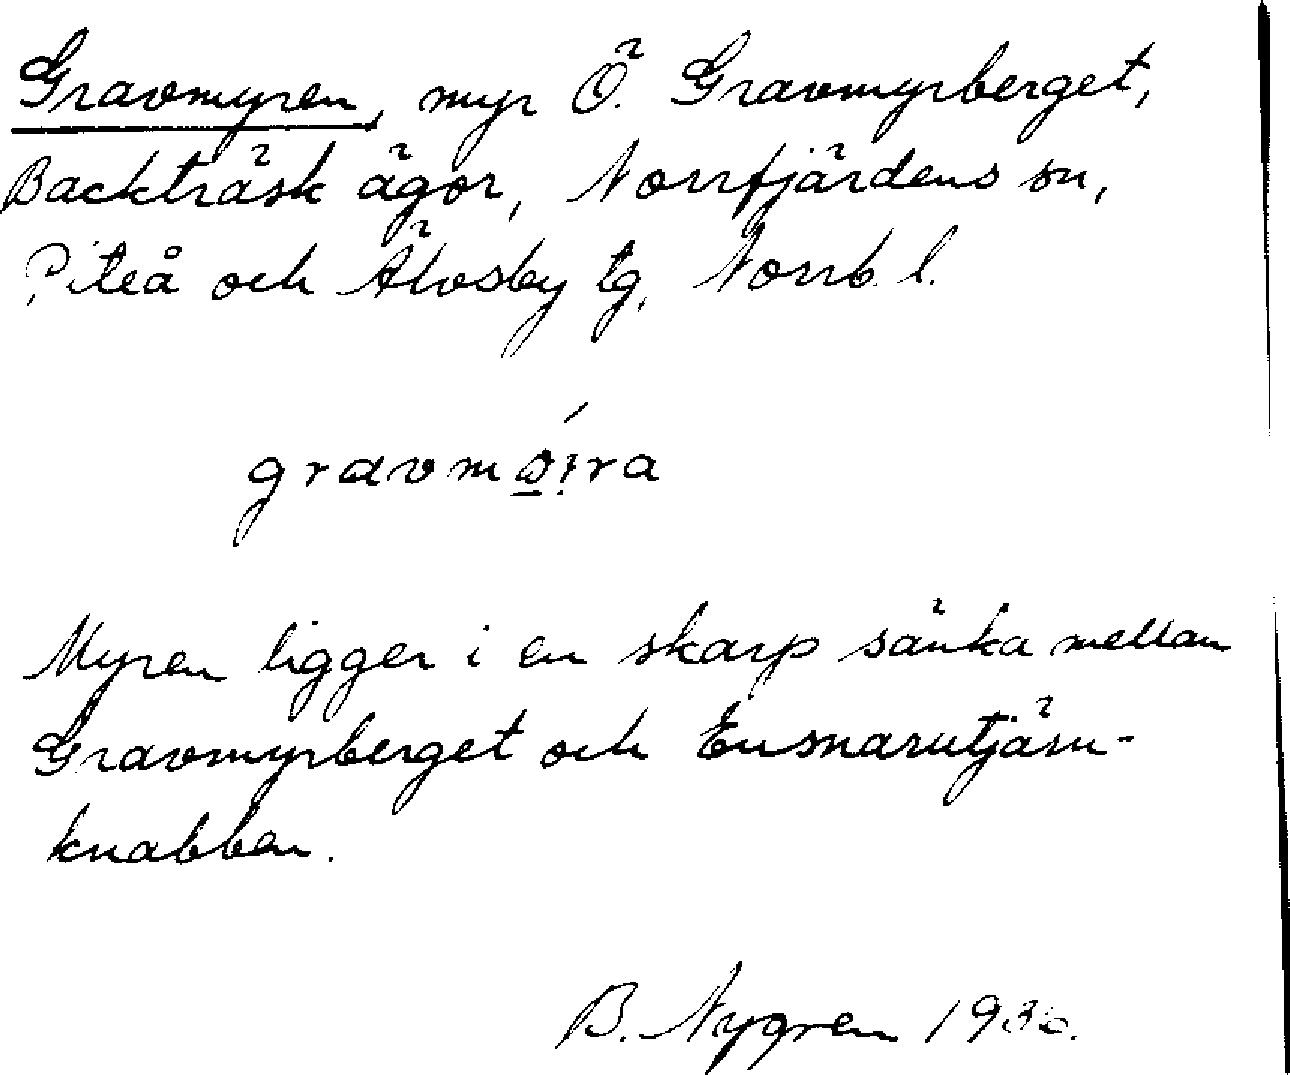 Gravmyren, myr Ö. Gravmyrberget,
Backträsk ägor, Norrfjärdens sn,
Piteå och Älvsby tg, Norrb. l.
gravmöira
Myren ligger i en skarp sänka mellan
Gravmyrberget och Ensmarutjärn-
knabben.
B. Nygren